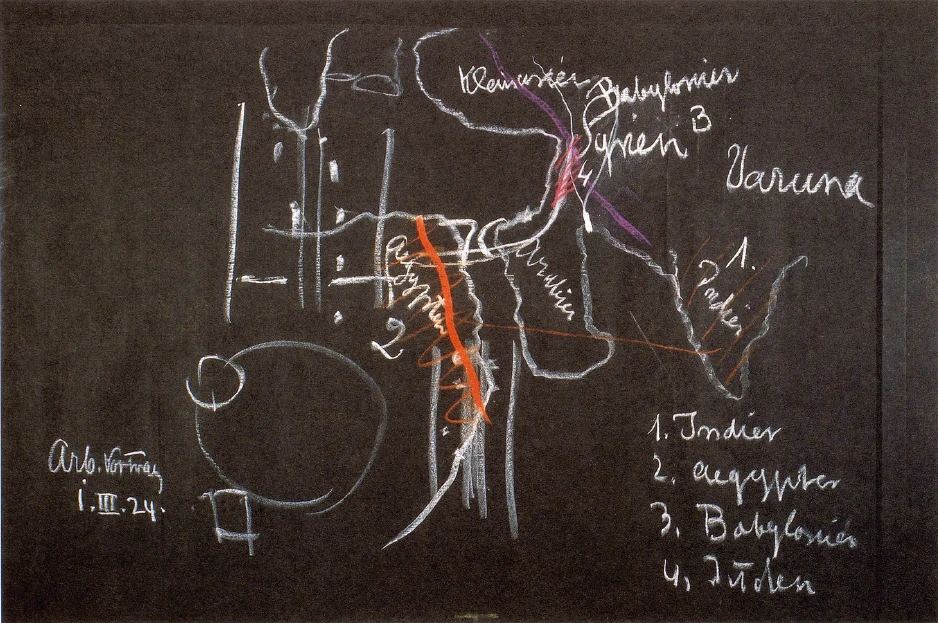 Kleinasien
Babylonier
3
Syrien
4
Varuna
1.
Indien
Arabien
Aegypten
2
1. Indier
2. Aegypter
3. Babylonier
4. Juden
Arb. Vortrag
1. III. 24.